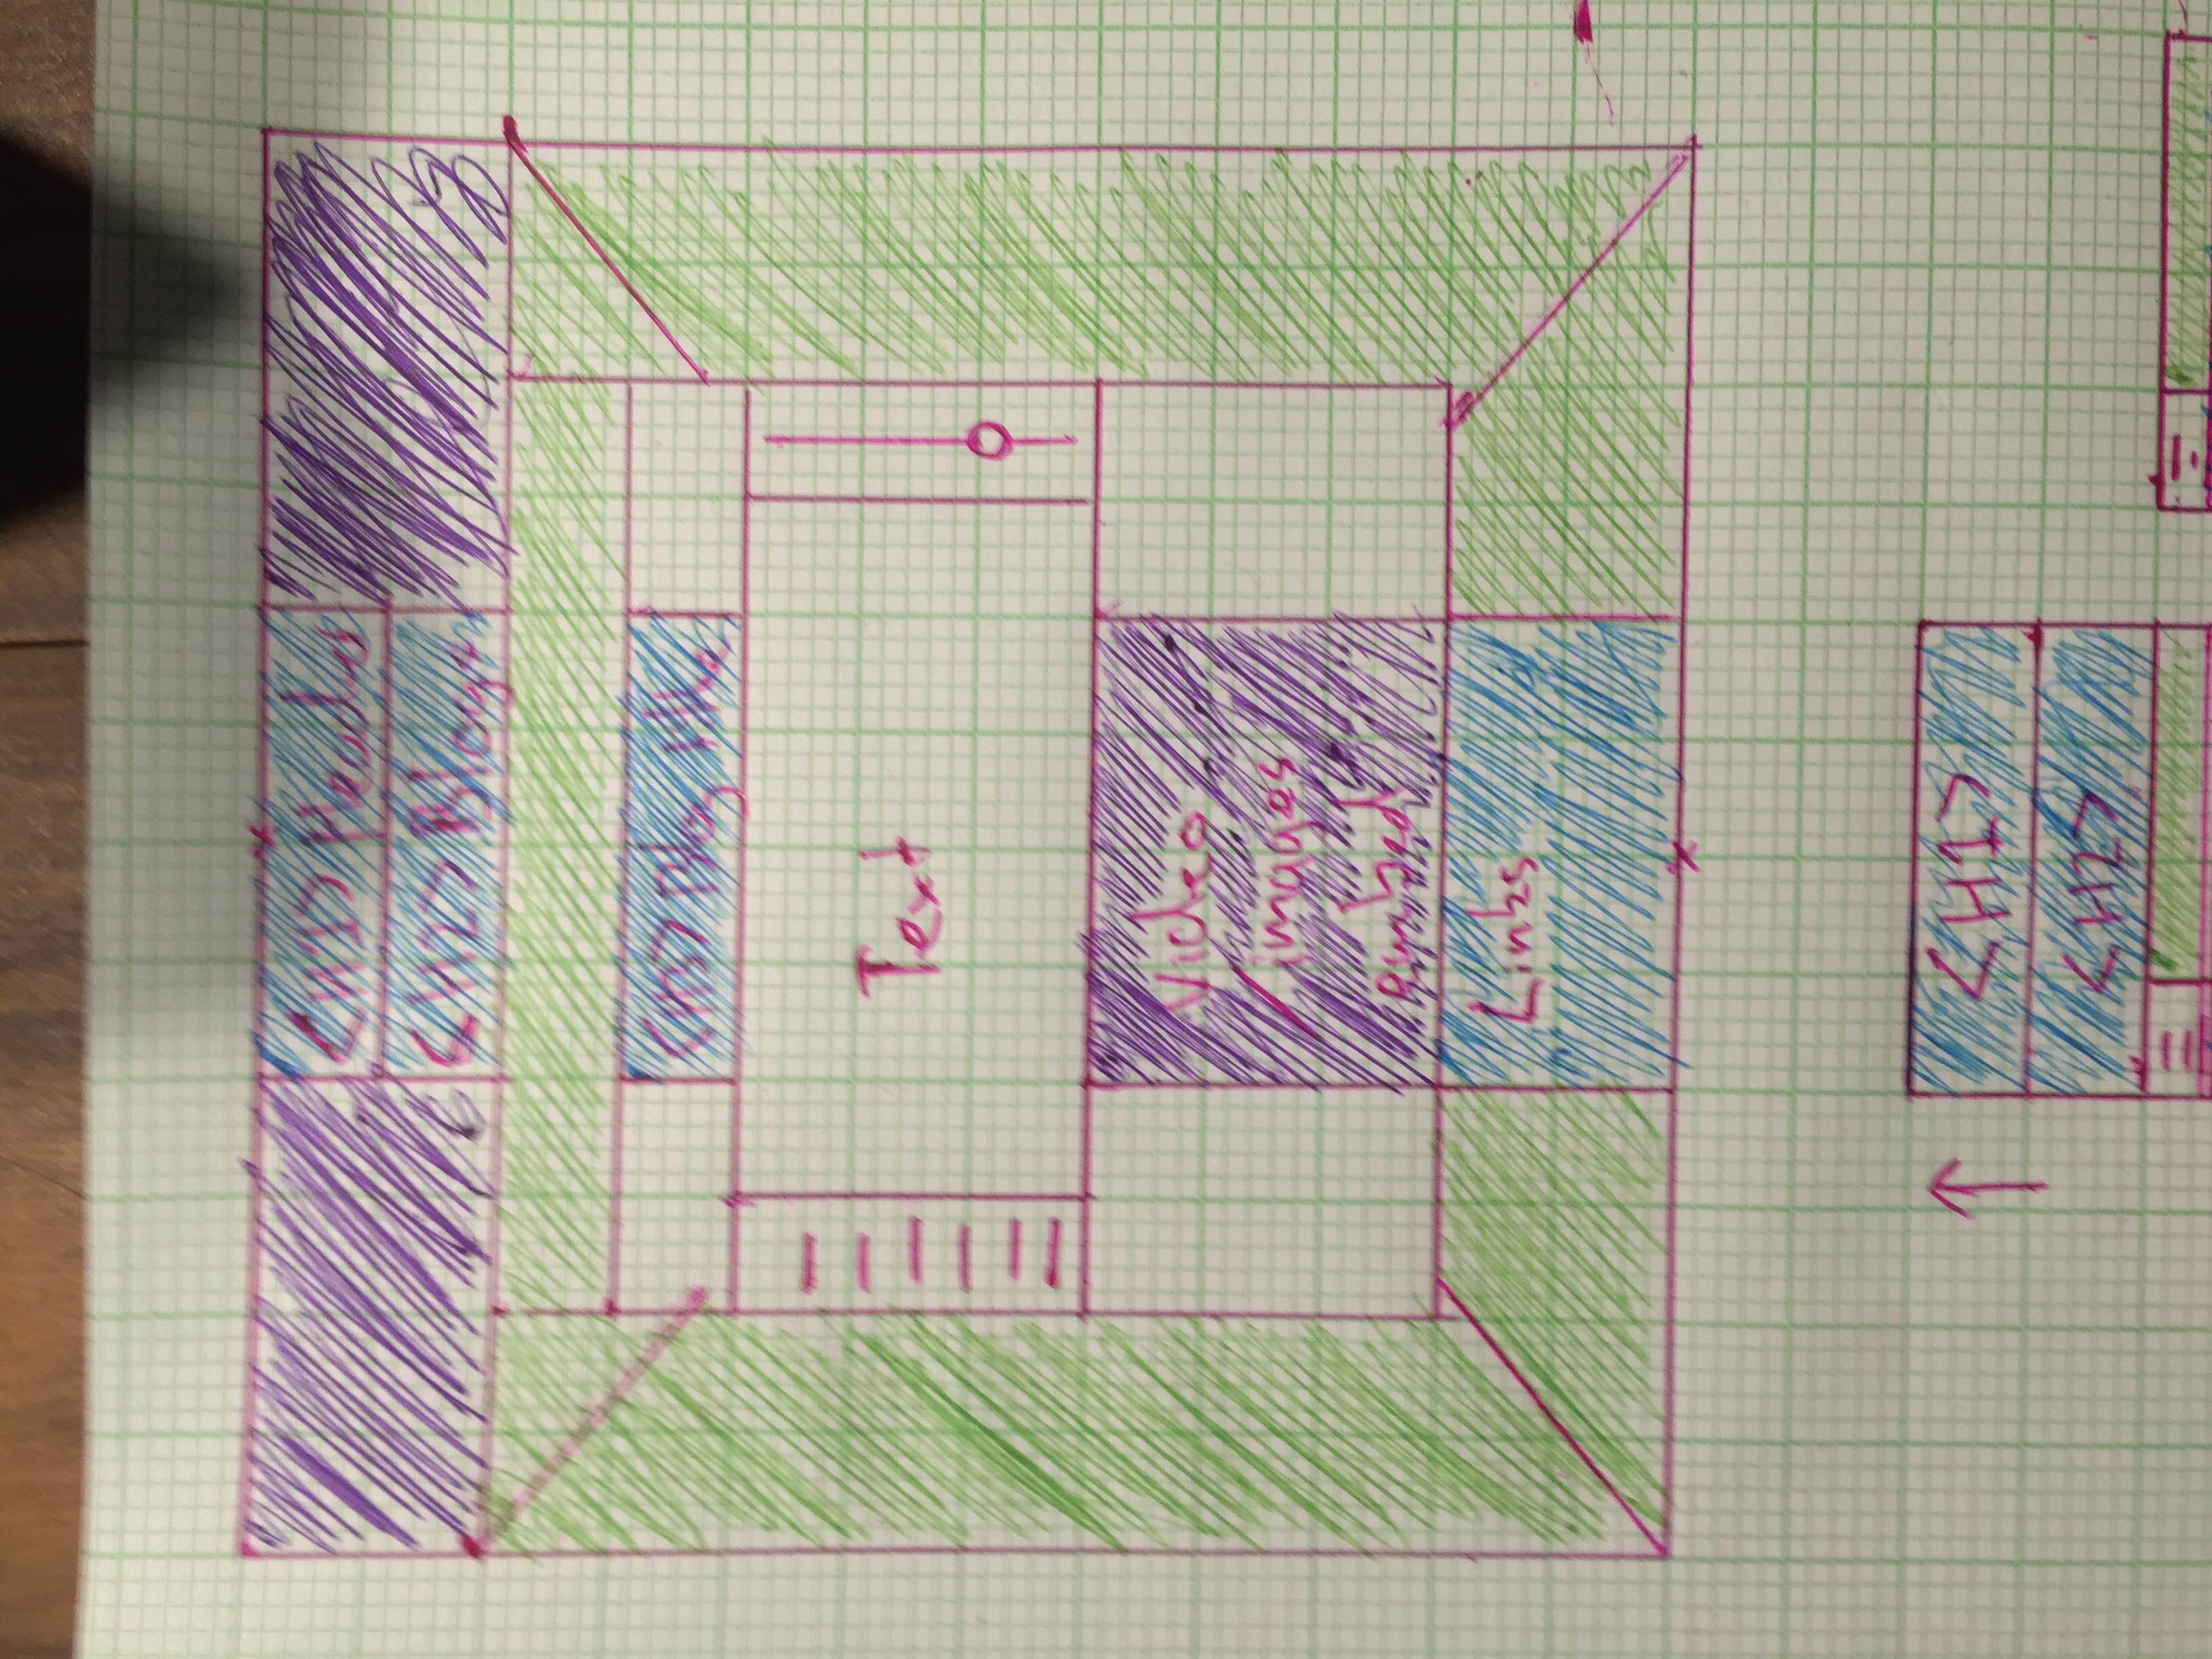 <H1> Header
<H2> Blog
<H3> Blog title
Text
Video
/images
Embed
Links
<H1>
<H2>